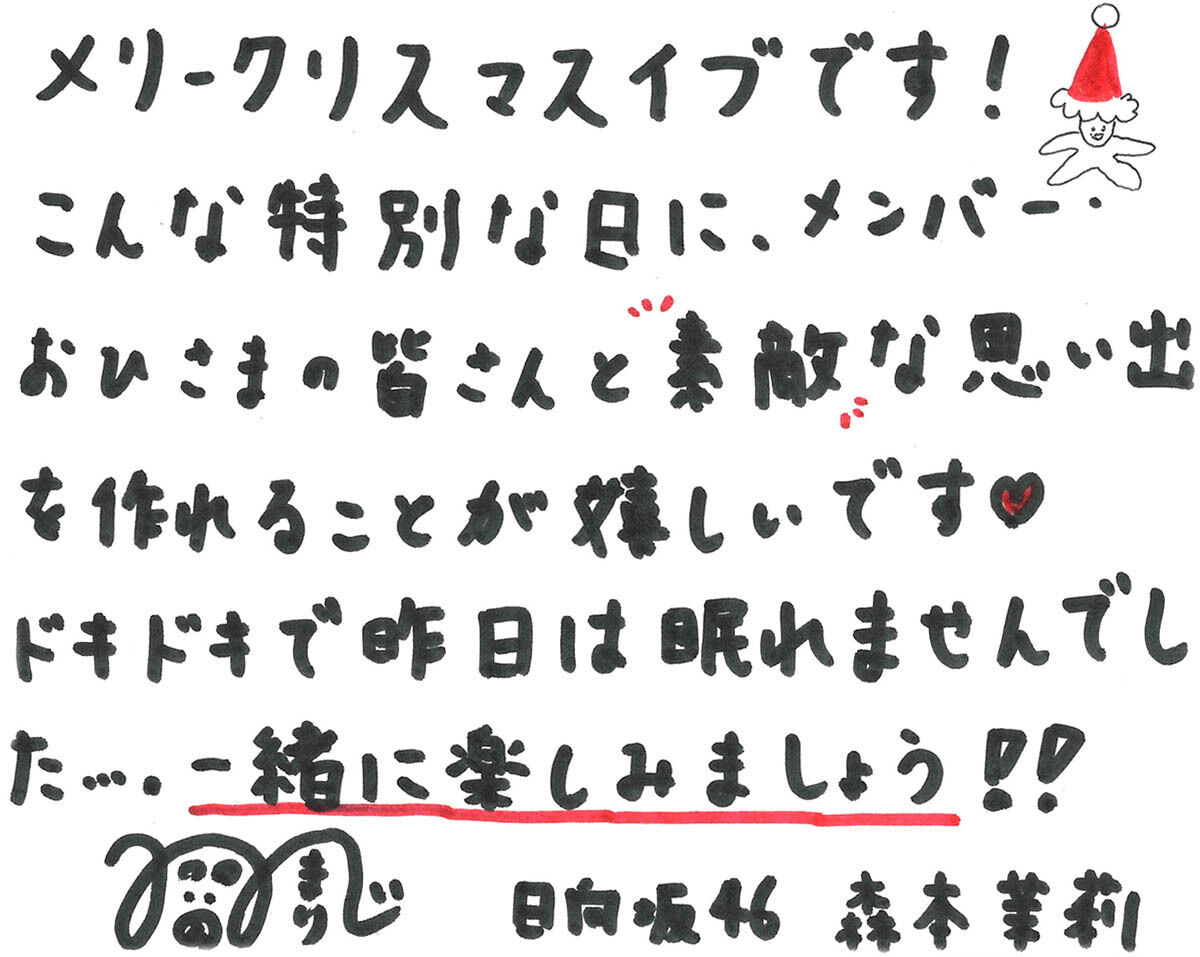 メリークリスマスイブです!
こんな特別な日に、メンバー・
おひさまの皆さんと素敵な思い出
を作れることが嬉しいです♥
ドキドキで昨日は眠れませんでし
た…。一緒に楽しみましょう!!
まりぃ
日向坂46 森本茉莉